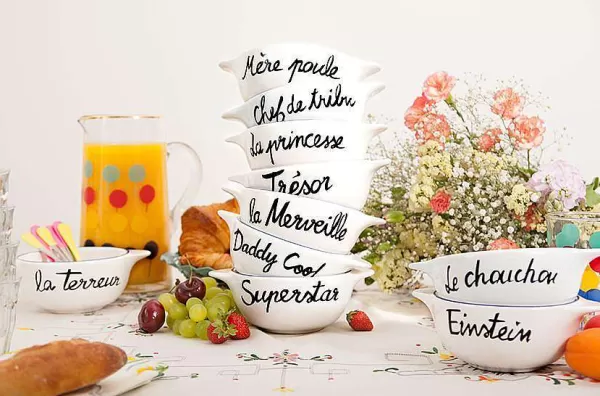 Mère poule
Chef de tribu
La princesse
Trésor
la Merveille
Daddy Cool
Superstar
la terreur
Le chouchou
Einstein